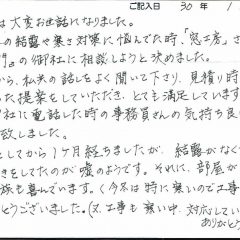 ご記入日 30年 1
は大変お世話になりました。
の結露や寒さ対策に悩んでた時、「窓工房」さ
門』の御社に相談しようと決めました。
から、私共の話しをよく聞いて下さり、見積り時
った提案をしていただき、とても満足しています
社に電話した時の事務員さんの気持ち良い
致しました。
としてから1ヶ月経ちましたが、結露がなく
きをしてたのが嘘のようです。それに、部屋が
族も喜んでいます。(今冬は特に寒いので工事
とうございました。(又、工事も寒い中、対応してい
ありがとう